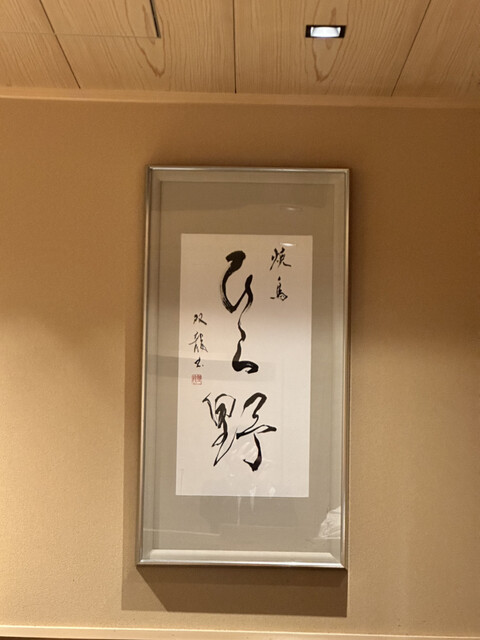 焼鳥
ひら野
双龍書